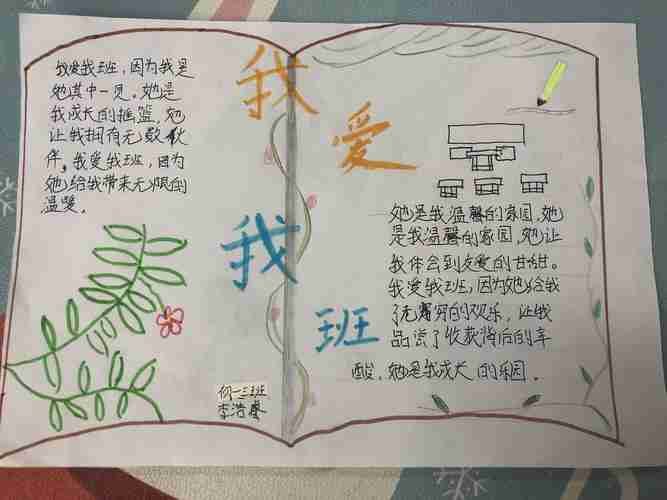 我爱我班
我爱我班，因为我是
她其中一员。她是
我成长的摇篮，她
让我拥有无数伙
伴。我爱我班，因为
她给我带来无限的
温暖。
三班
李浩
她是我温馨的家园，她
是我温馨的家园，她让
我体会到友爱的甘甜。
我爱我班，因为她给我
了无穷的欢乐，让我
品尝了收获背后的辛
酸，她是我成长的乐园。